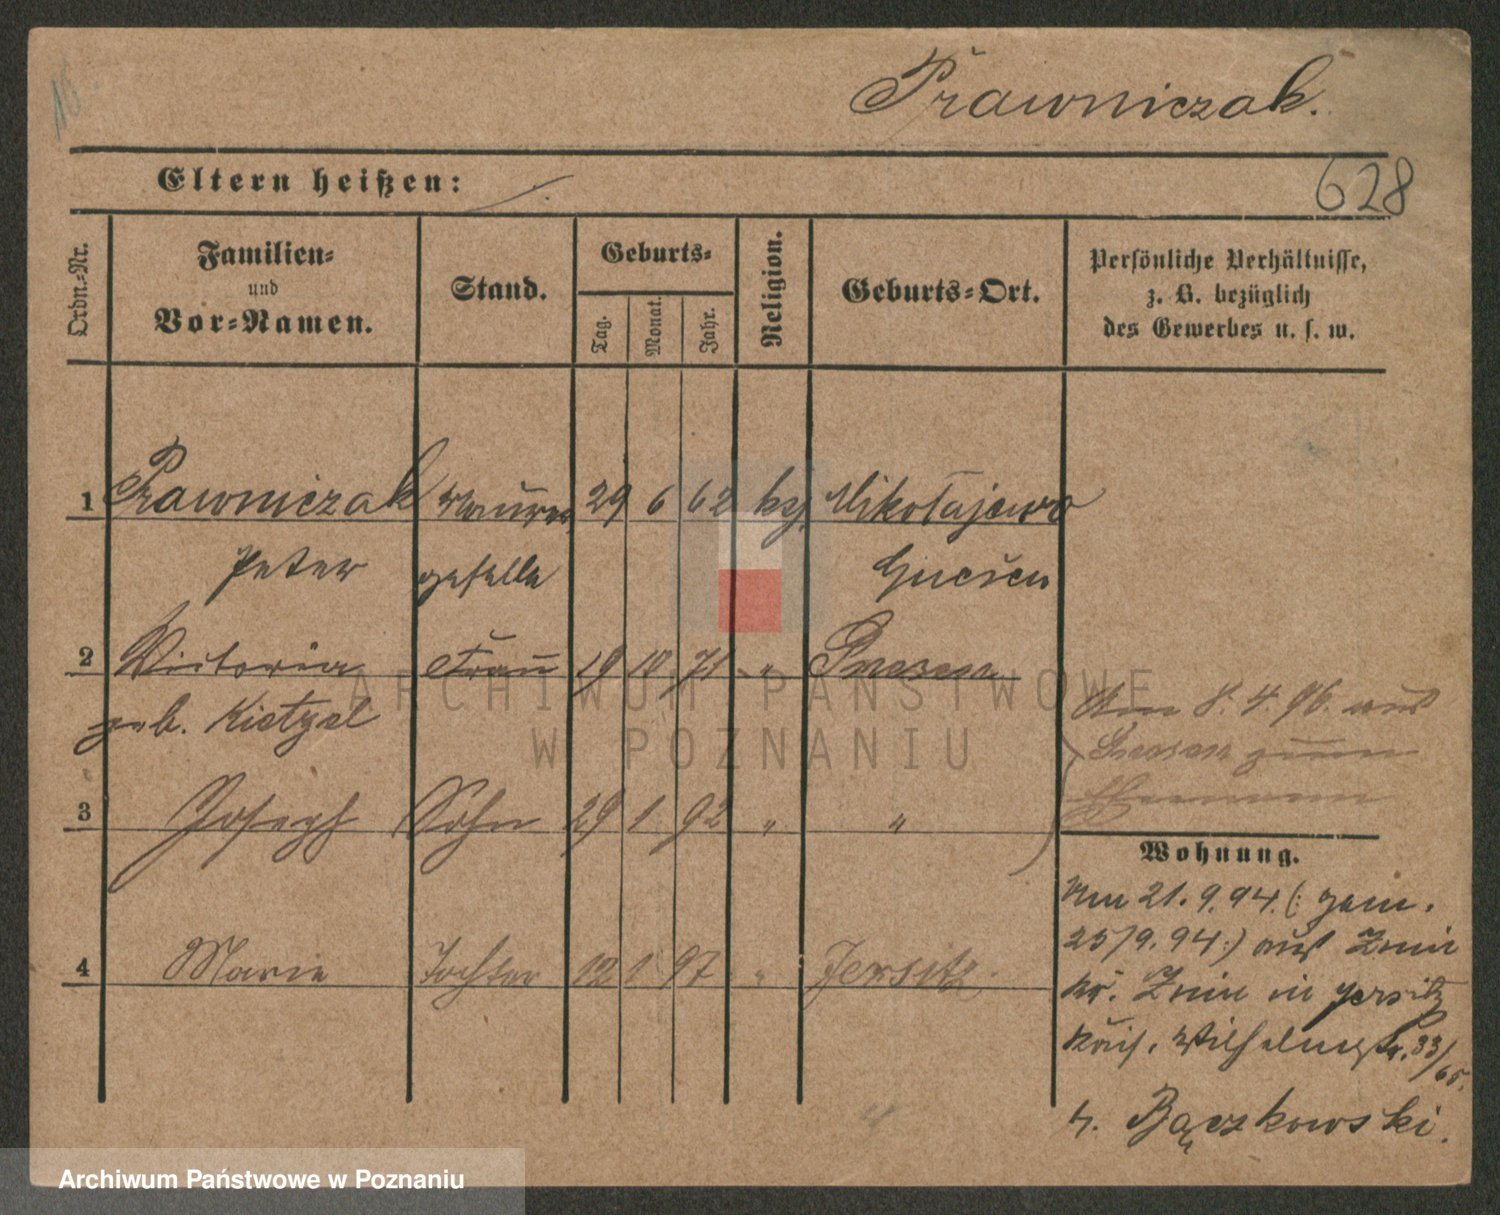 Prawniczak.
Eltern heißen:
628
Ordn.-Nr.
Familien-
und
Vor-Namen.
Stand.
Geburts-
Tag.
Monat.
Jahr.
Religion.
Geburts-Ort.
Persönliche Verhältnisse,
z. B. bezüglich
des Gewerbes u. s. w.
1 Prawniczak Maurer 29 6 62 kg. Mikołajewo
Peter geselle Gnesen
2 Victoria Frau 19 10 71 " Gnesen
geb. Kietzel
Am 8. 4. 96. aus
Gnesen zum
Ehemann
3 Joseph Sohn 29 1 92 " "
4 Marie Tochter 12 1 97 " Jersitz.
Wohnung.
Am 21. 9. 94. (: gem.
25/9. 94 :) aus Znin
Kr. Znin in Jersitz
Kais. Wilhelmstr. 33/65.
b. Bączkowski.
ARCHIWUM PAŃSTWOWE
W POZNANIU
Archiwum Państwowe w Poznaniu